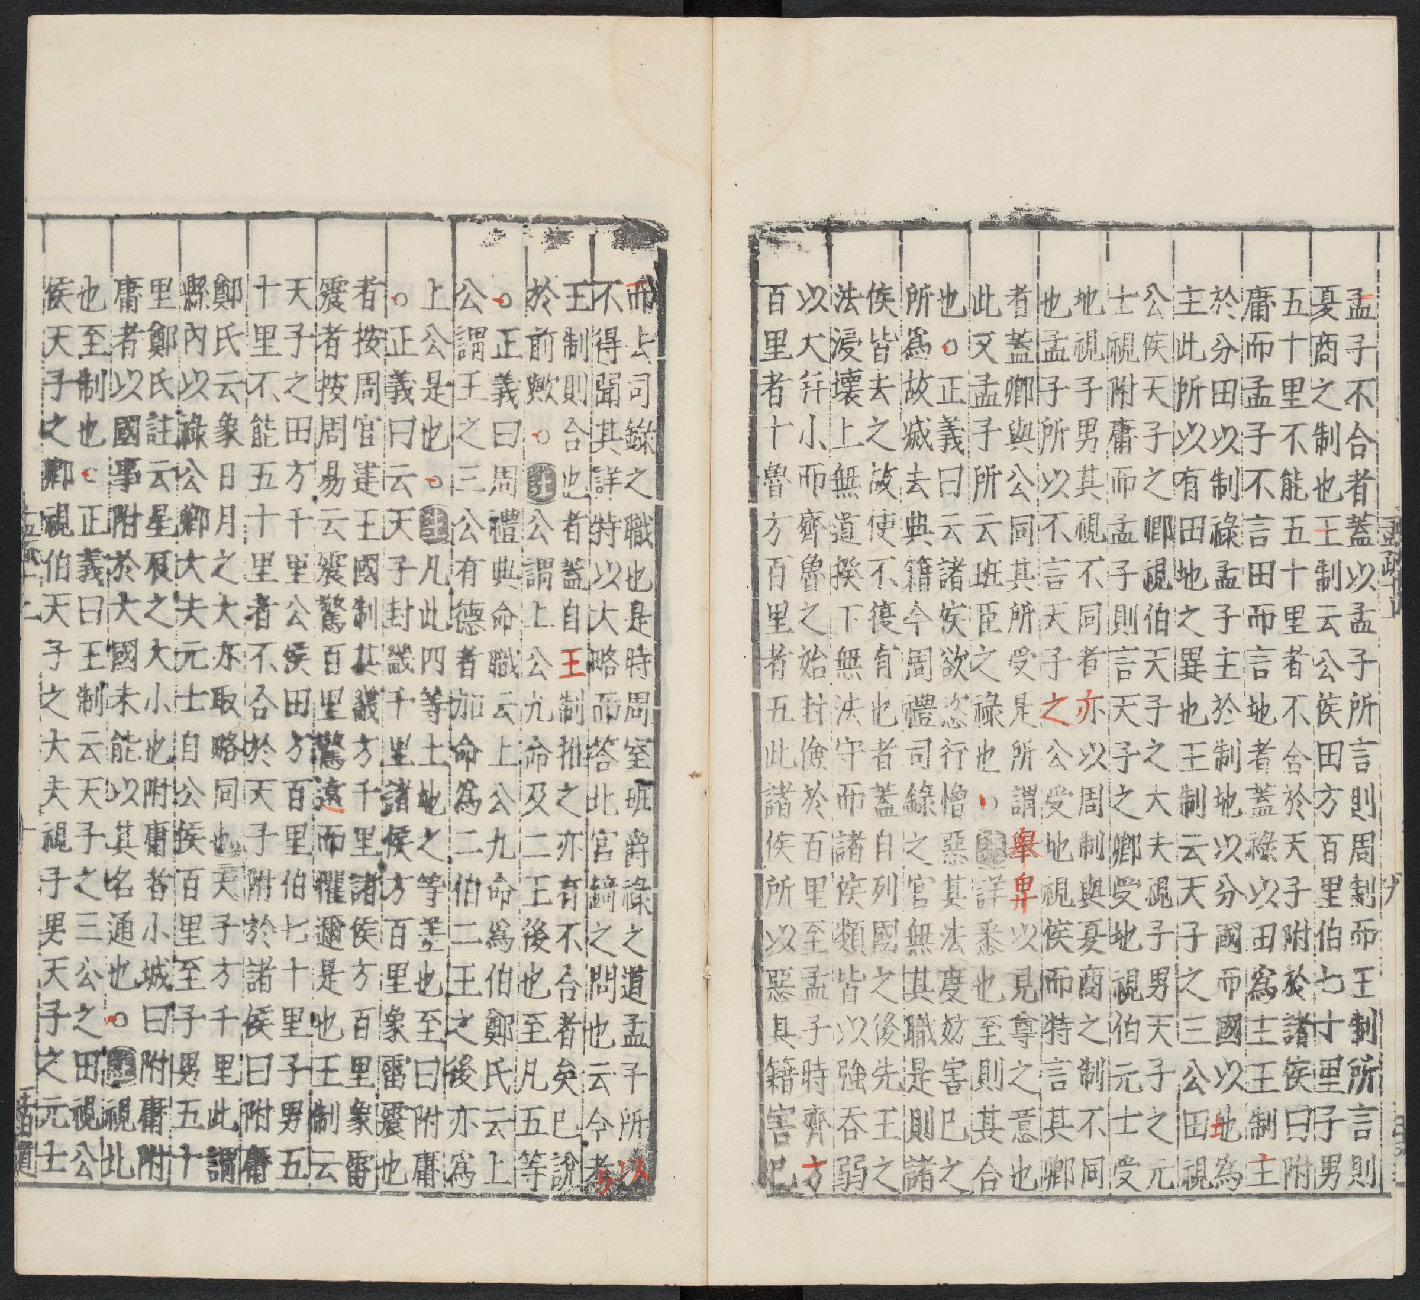 孟子不合者蓋以孟子所言則周制而王制所言則
夏商之制也王制云公侯田方百里伯七十里子男
五十里不能五十里者不合於天子附於諸侯曰附
庸而孟子不言田而言地者蓋祿以田為主王制主
於分田以制祿孟子主於制地以分國而國以地為
主此所以有田地之異也王制云天子之三公田視
公侯天子之卿視伯天子之大夫視子男天子之元
士視附庸而孟子則言天子之卿受地視伯元士受
地視子男其視不同者亦以周制與夏商之制不同
也孟子所以不言天子之公受地視侯而特言其卿
者蓋卿與公同其所受是所謂舉卑以見尊之意也
此又孟子所云班臣之祿也註詳悉也至則其合
也正義曰云諸侯欲恣行憎惡其法度妨害已之
所為故滅去典籍今周禮司祿之官無其職是則諸
侯皆去之故使不復有也者蓋自列國之後先王之
法浸壞上無道揆下無法守而諸侯類皆以強吞弱
以大并小而齊魯之始封儉於百里至孟子時齊方
百里者十魯方百里者五此諸侯所以惡其籍害已
而上司錄之職也是時周室班爵祿之道孟子所以
不得聞其詳特以大略而答北宮錡之問也云今考
王制則合也者蓋自王制推之亦有不合者矣已說
於前歟註公謂上公九命及二王後也至凡五等
正義曰周禮典命職云上公九命為伯鄭氏云上
公謂王之三公有德者加命為二伯二王之後亦為
上公是也註凡此四等土地之等差也至曰附庸
正義曰云天子封畿千里諸侯方百里象雷震也
者按周官建王國制其畿方千里諸侯方百里象雷
震者按周易云震驚百里驚遠而懼邇是也王制云
天子之田方千里公侯田方百里伯七十里子男五
十里不能五十里者不合於天子附於諸侯曰附庸
鄭氏云象日月之大亦取略同也天子方千里此謂
縣內以祿公卿大夫元士自公侯百里至子男五十
里鄭氏註云星辰之大小也附庸者小城曰附庸附
庸者以國事附於大國未能以其名通也註視北
也至制也正義曰王制云天子之三公之田視公
侯天子之卿視伯天子之大夫視子男天子之元士